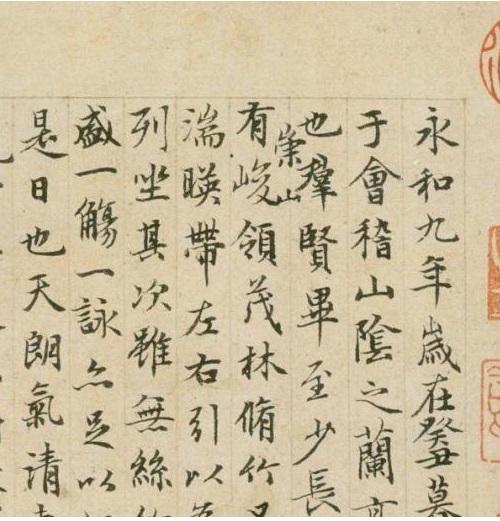 永和九年歲在癸丑暮
于會稽山陰之蘭亭
也羣賢畢至少長
有崇山峻領茂林脩竹
湍暎帶左右引以為
列坐其次雖無絲
盛一觴一詠亦足以
是日也天朗氣清